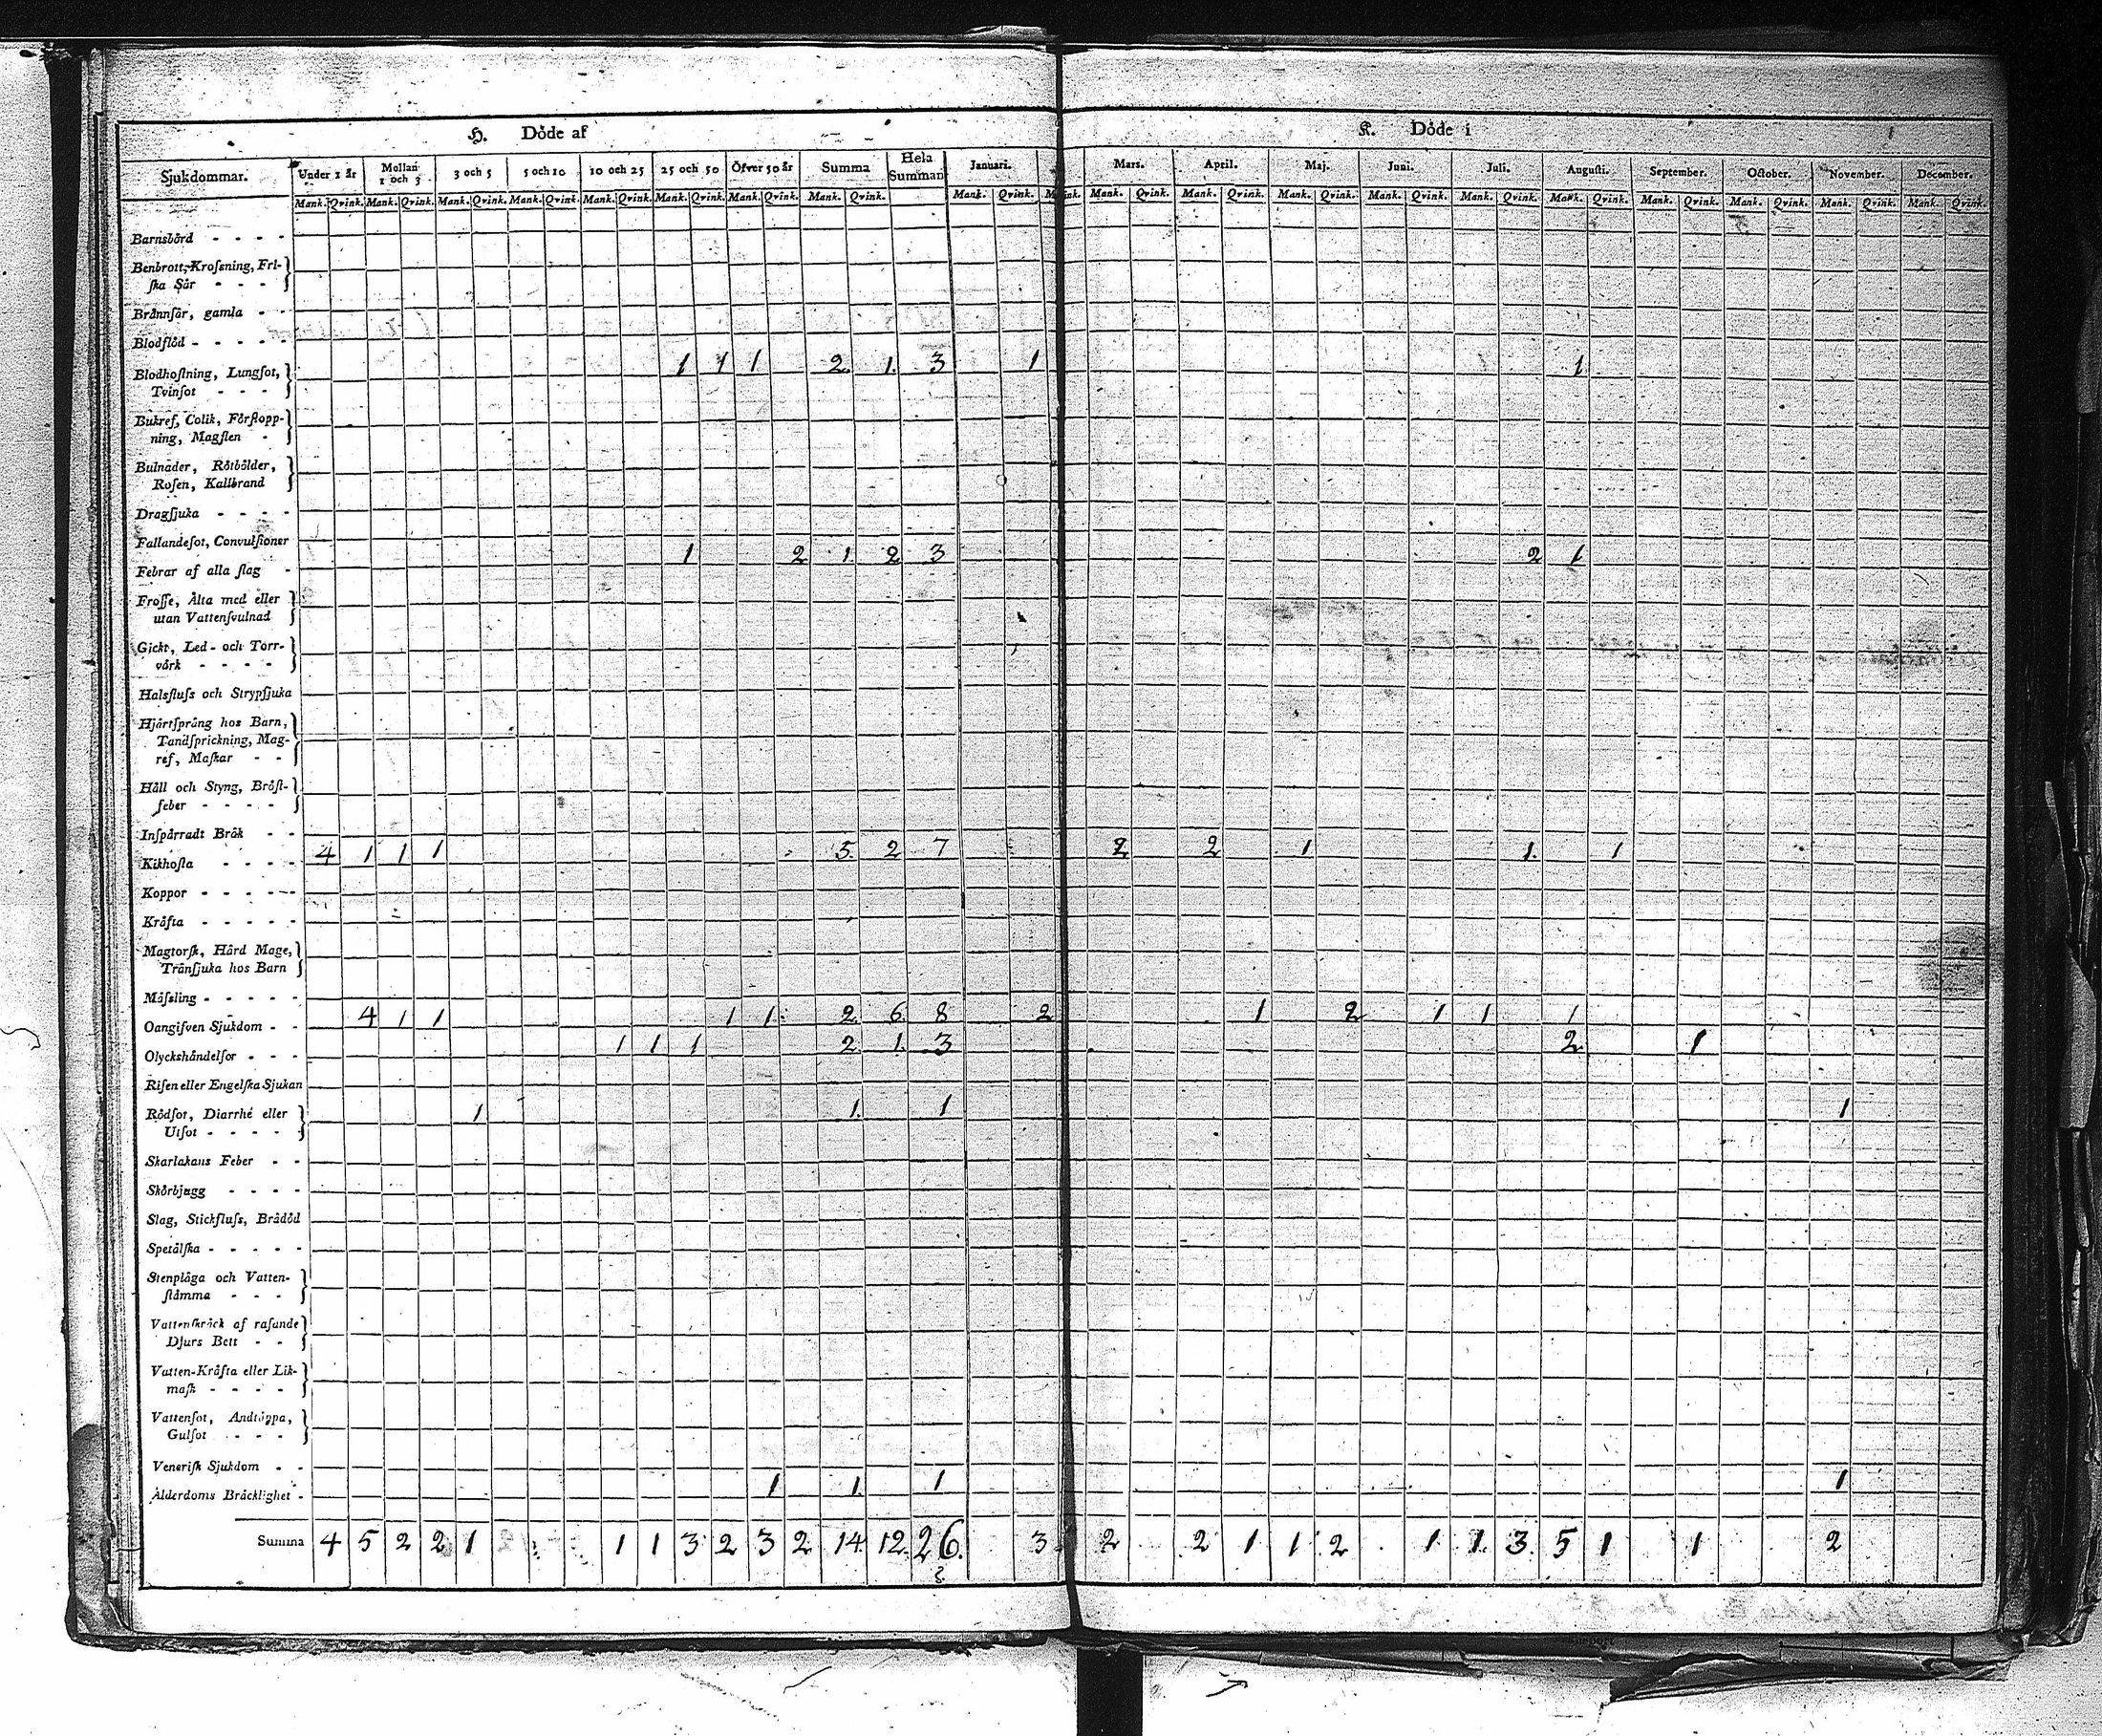 H. Döde af
K. Döde i
Sjukdommar. Under 1 år Mellan 1 och 3 3 och 5 5 och 10 10 och 25 25 och 50 Öfver 50 år Summa Hela Summan Januari. Mars. April. Maj. Juni. Juli. Augusti. September. October. November. December.
Mank. Qvink. Mank. Qvink. Mank. Qvink. Mank. Qvink. Mank. Qvink. Mank. Qvink. Mank. Qvink. Mank. Qvink. Mank. Qvink. Mank. Qvink. Mank. Qvink. Mank. Qvink. Mank. Qvink. Mank. Qvink. Mank. Qvink. Mank. Qvink. Mank. Qvink. Mank. Qvink. Mank. Qvink.
Barnsbörd
Benbrott, Krofsning, Fri-
ſka Sår
Brännſår, gamla
Blodflöd
Blodhoſtning, Lungſot, 1 1 1 2 1 3 1 1
Tvinſot
Bukref, Colik, Förſtopp-
ning, Magſten
Bulnader, Rötbölder,
Roſen, Kallbrand
Dragſjuka
Fallandeſot, Convulſioner
Febrar af alla ſlag 1 2 1 2 3 2 1
Froſſe, Älta med eller
utan Vattenſvulnad
Gickt, Led- och Torr-
värk
Halsfluſs och Strypſjuka
Hjärtſprång hos Barn,
Tandſprickning, Mag-
ref, Maſkar
Håll och Styng, Bröſt-
feber
Inſpärradt Bråk
Kikhoſta 4 1 1 1 5 2 7 2 2 1 1 1
Koppor
Kräfta
Magtorſk, Hård Mage,
Tränſjuka hos Barn
Måſsling
Oangifven Sjukdom 4 1 1 1 1 2 6 8 2 1 2 1 1 1
Olyckshändelſor 1 1 1 2 1 3 2 1
Riſen eller Engelſka Sjukan
Rödſot, Diarrhé eller 1 1 1 1
Utſot
Skarlakans Feber
Skörbjugg
Slag, Stickfluſs, Brådöd
Spetälſka
Stenplåga och Vatten-
ſtämma
Vattenſkräck af raſande
Djurs Bett
Vatten-Kräfta eller Lik-
maſk
Vattenſot, Andtäppa,
Gulſot
Veneriſk Sjukdom
Ålderdoms Bräcklighet 1 1 1 1
Summa 4 5 2 2 1 1 1 3 2 3 2 14 12 26. 3 2 2 1 1 2 1 1 3 5 1 1 2